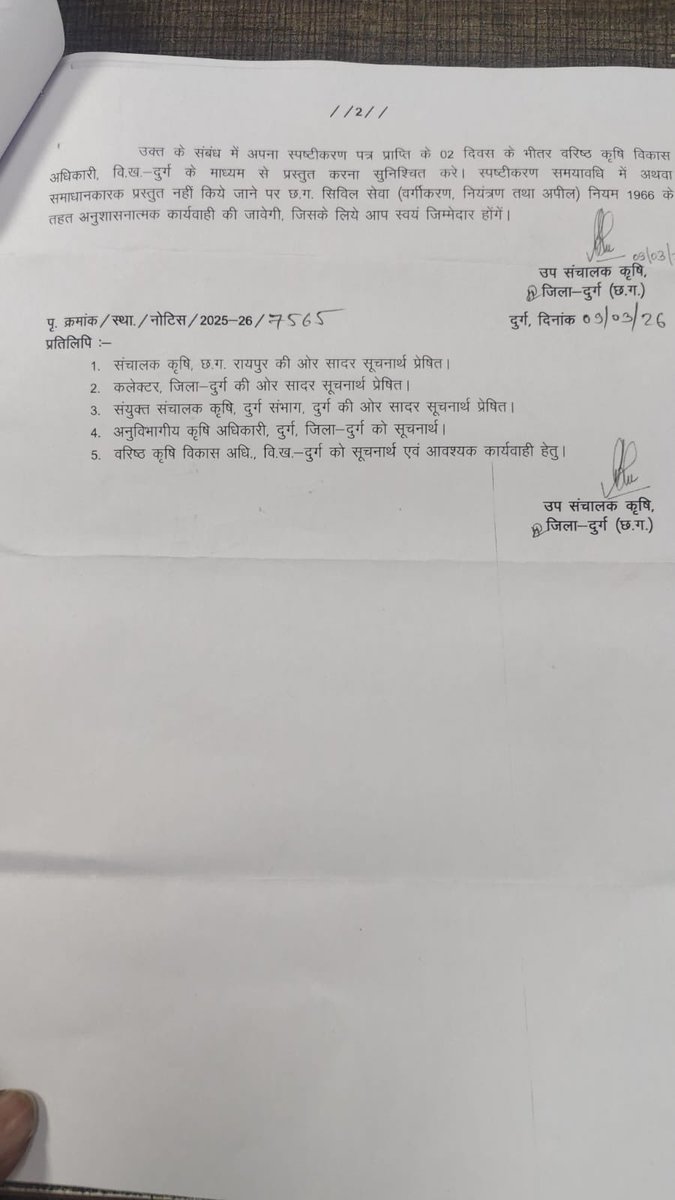 //2//
उक्त के संबंध में अपना स्पष्टीकरण पत्र प्राप्ति के 02 दिवस के भीतर वरिष्ठ कृषि विकास
अधिकारी, वि.ख.–दुर्ग के माध्यम से प्रस्तुत करना सुनिश्चित करे। स्पष्टीकरण समयावधि में अथवा
समाधानकारक प्रस्तुत नहीं किये जाने पर छ.ग. सिविल सेवा (वर्गीकरण, नियंत्रण तथा अपील) नियम 1966 के
तहत अनुशासनात्मक कार्यवाही की जावेगी, जिसके लिये आप स्वयं जिम्मेदार होंगें।
उप संचालक कृषि,
जिला–दुर्ग (छ.ग.)
पृ. क्रमांक/स्था./नोटिस/2025–26/7565
दुर्ग, दिनांक 09/03/26
प्रतिलिपि :–
1. संचालक कृषि, छ.ग. रायपुर की ओर सादर सूचनार्थ प्रेषित।
2. कलेक्टर, जिला–दुर्ग की ओर सादर सूचनार्थ प्रेषित।
3. संयुक्त संचालक कृषि, दुर्ग संभाग, दुर्ग की ओर सादर सूचनार्थ प्रेषित।
4. अनुविभागीय कृषि अधिकारी, दुर्ग, जिला–दुर्ग को सूचनार्थ।
5. वरिष्ठ कृषि विकास अधि., वि.ख.–दुर्ग को सूचनार्थ एवं आवश्यक कार्यवाही हेतु।
उप संचालक कृषि,
जिला–दुर्ग (छ.ग.)